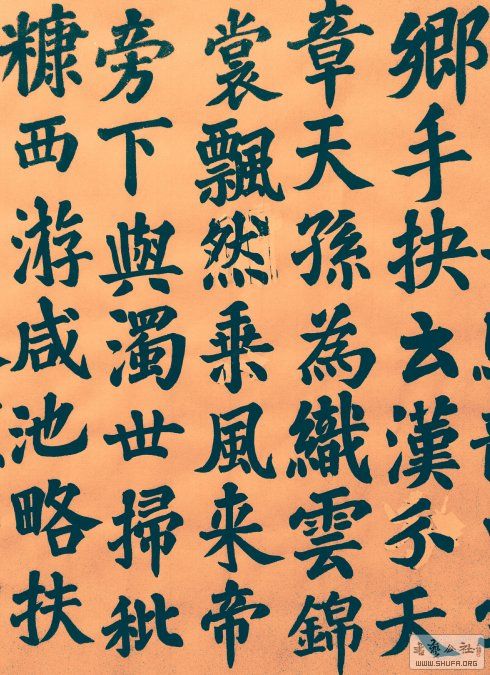 鄉手抉云漢分天
章天孫為織雲錦
裳飄然乗風来帝
旁下與濁世掃秕
糠西游咸池略扶
WWW.SHUFA.ORG